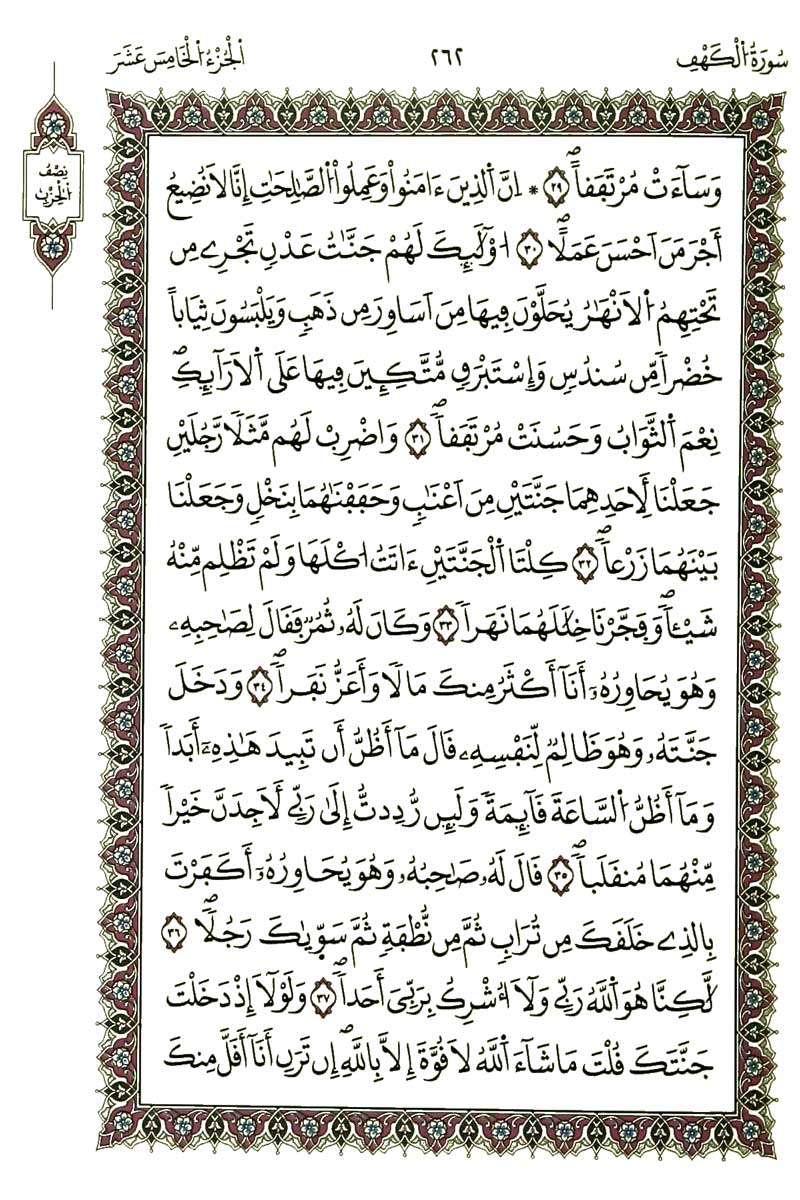 سُورَةُ الْكَهْفِ
٢٦٢
اَلْجُزْءُ الْخَامِسَ عَشَرَ
نِصْفُ
اَلْحِزْبِ
وَسَآءَتْ مُرْتَفَقاًۖ ٢٩ * اِنَّ اَ۬لذِينَ ءَامَنُواْ وَعَمِلُواْ اُ۬لصَّٰلِحَٰتِ إِنَّا لَا نُضِيعُ
أَجْرَ مَنَ اَحْسَنَ عَمَلًاۖ ٣٠ اُوْلَٰٓئِكَ لَهُمْ جَنَّٰتُ عَدْنٖ تَجْرِے مِن
تَحْتِهِمُ اُ۬لَانْهَٰرُ يُحَلَّوْنَ فِيهَا مِنَ اَسَاوِرَ مِن ذَهَبٖ وَيَلْبَسُونَ ثِيَاباً
خُضْراٗ مِّن سُندُسٖ وَإِسْتَبْرَقٖ مُّتَّكِـِٕينَ فِيهَا عَلَى اَ۬لَارَآئِكِۖ
نِعْمَ اَ۬لثَّوَابُ وَحَسُنَتْ مُرْتَفَقاًۖ ٣١ وَاضْرِبْ لَهُم مَّثَلٗا رَّجُلَيْنِ
جَعَلْنَا لِأَحَدِهِمَا جَنَّتَيْنِ مِنَ اَعْنَٰبٖ وَحَفَفْنَٰهُمَا بِنَخْلٖ وَجَعَلْنَا
بَيْنَهُمَا زَرْعاٗۖ ٣٢ كِلْتَا اَ۬لْجَنَّتَيْنِ ءَاتَتُ ا۟كْلَهَا وَلَمْ تَظْلِم مِّنْهُ
شَيْـٔاٗۖ وَفَجَّرْنَا خِلَٰلَهُمَا نَهَراٗ ٣٣ وَكَانَ لَهُۥ ثُمُرٞ فَقَالَ لِصَٰحِبِهِۦ
وَهُوَ يُحَاوِرُهُۥٓ أَنَآ أَكْثَرُ مِنكَ مَالٗا وَأَعَزُّ نَفَراٗۖ ٣٤ وَدَخَلَ
جَنَّتَهُۥ وَهُوَ ظَالِمٞ لِّنَفْسِهِۦ قَالَ مَآ أَظُنُّ أَن تَبِيدَ هَٰذِهِۦٓ أَبَداٗ
وَمَآ أَظُنُّ اُ۬لسَّاعَةَ قَآئِمَةٗ وَلَئِن رُّدِدتُّ إِلَىٰ رَبِّے لَأَجِدَنَّ خَيْراٗ
مِّنْهُمَا مُنقَلَباٗۖ ٣٥ قَالَ لَهُۥ صَاحِبُهُۥ وَهُوَ يُحَاوِرُهُۥٓ أَكَفَرْتَ
بِالذِے خَلَقَكَ مِن تُرَابٖ ثُمَّ مِن نُّطْفَةٖ ثُمَّ سَوّ۪يٰكَ رَجُلٗاۖ ٣٦
لَّٰكِنَّا هُوَ اَ۬للَّهُ رَبِّے وَلَآ أُشْرِكُ بِرَبِّيَ أَحَداٗۖ ٣٧ وَلَوْلَآ إِذْ دَخَلْتَ
جَنَّتَكَ قُلْتَ مَا شَآءَ اَ۬للَّهُ لَا قُوَّةَ إِلَّا بِاللَّهِۖ إِن تَرَنِ أَنَآ أَقَلَّ مِنكَ